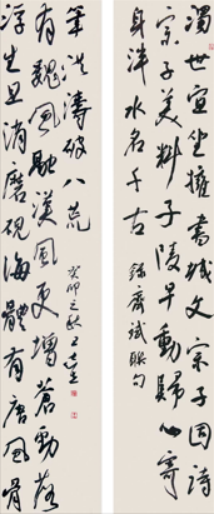 濁世宜坐擁書城文宗子固詩
宗子美料子陵早動歸心寄
身泮水名千古
錄齊斌聯句
浮生且消磨硯海體有唐風骨
有魏風融漢風更增蒼勁落
筆洪濤破八荒
癸卯之秋王